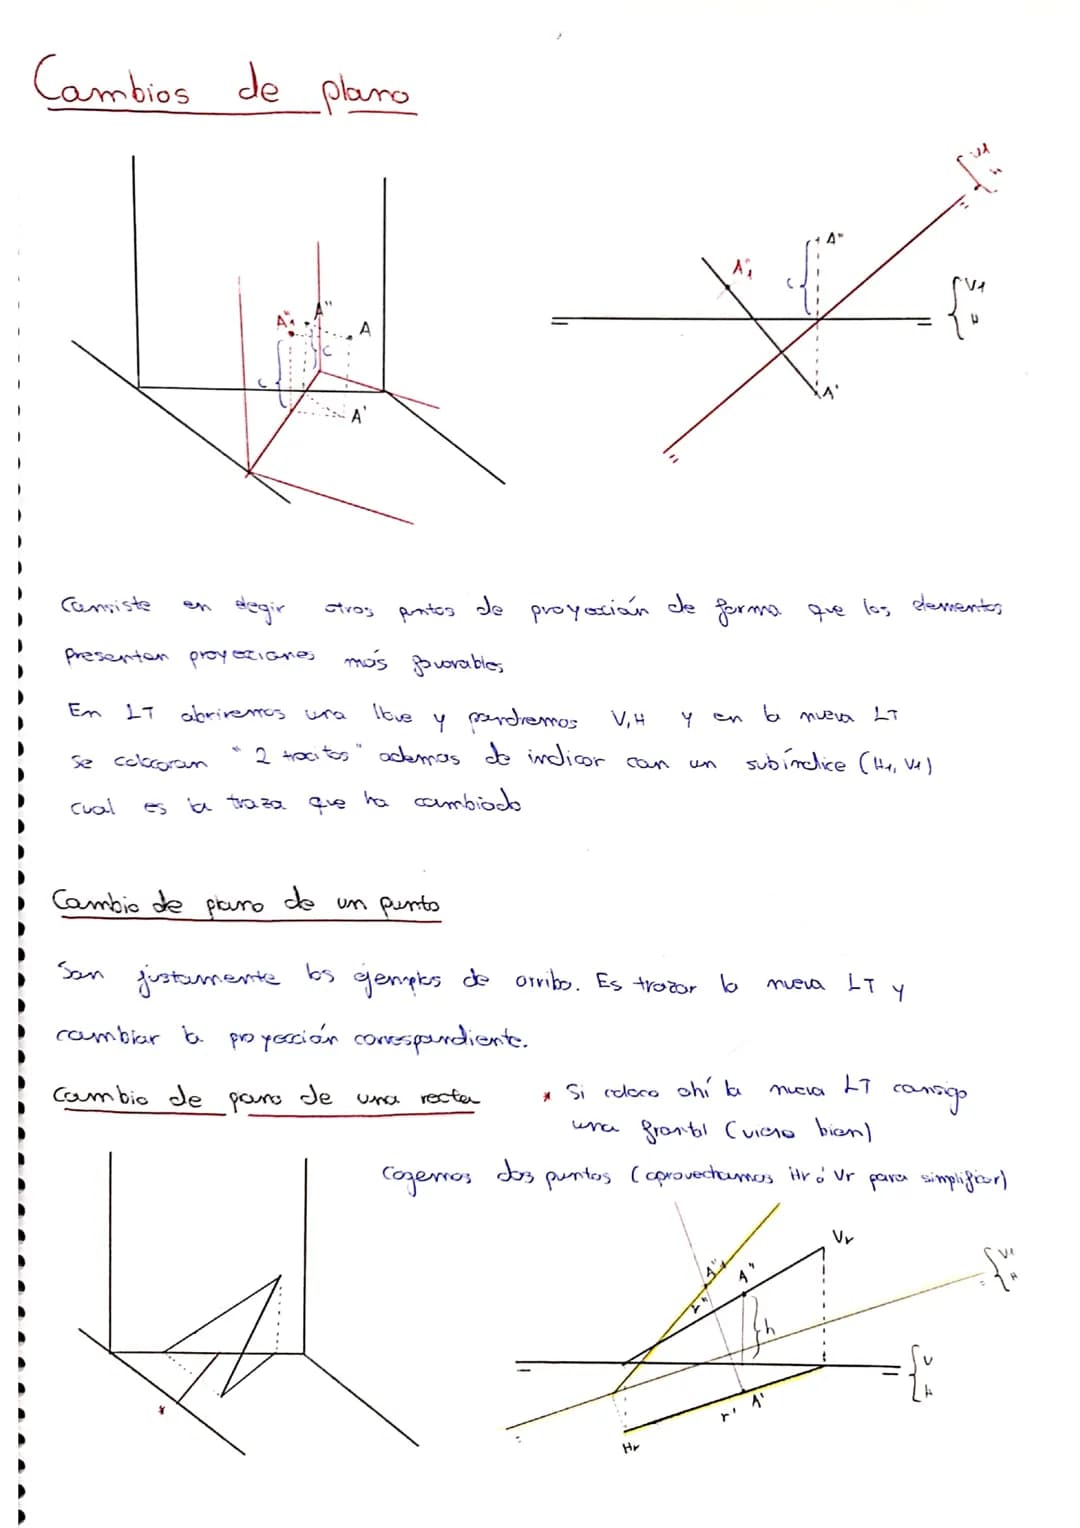 Cambios de plano
V1
H
A"
A"1
c
V1
H
A'
A"1
A"
A
c
c
A'
Consiste en elegir otros puntos de proyección de forma que los elementos
presenten proyecciones más favorables
En LT abriremos una llave y pondremos V, H y en la nueva LT
se colocaran "2 tracitos" ademas de indicar con un subíndice (H1, V1)
cual es la traza que ha cambiado
Cambio de plano de un punto
Son justamente los ejemplos de arriba. Es trazar la nueva LT y
cambiar la proyección correspondiente.
Cambio de plano de una recta
* Si coloco ahí la nueva LT consigo
una frontal (vista bien)
Cogemos dos puntos (aprovechamos Hr ó Vr para simplificar)
Vr
A"1
A"
r"
h
V1
H
V
H
A'
r'
Hr
*